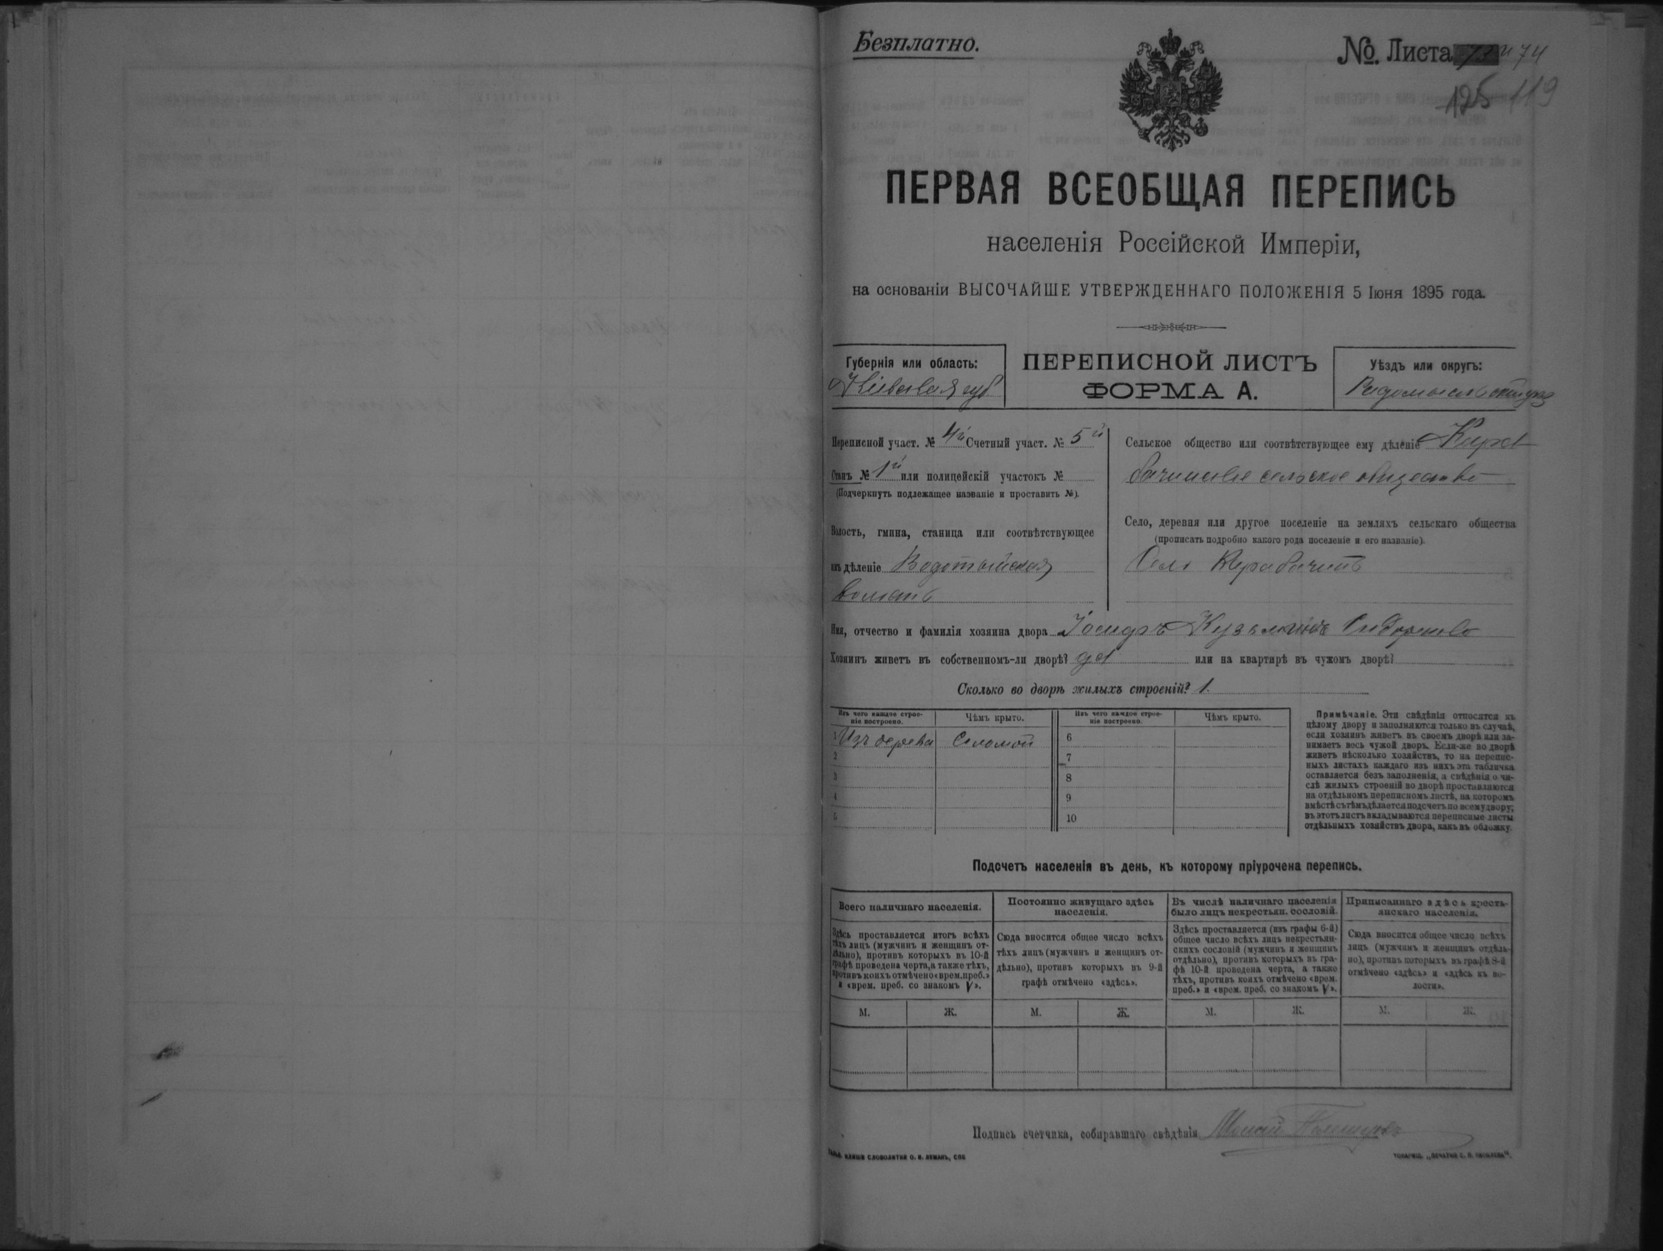 Безплатно.
№. Листа 74
125 119
ПЕРВАЯ ВСЕОБЩАЯ ПЕРЕПИСЬ
населенія Россійской Имперіи,
на основаніи ВЫСОЧАЙШЕ УТВЕРЖДЕННАГО ПОЛОЖЕНІЯ 5 Іюня 1895 года.
Губернія или область:
Кіевская губ
ПЕРЕПИСНОЙ ЛИСТЪ
ФОРМА А.
Уѣздъ или округъ:
Переписной участ. № 4й Счетный участ. № 5й
Станъ № 1й или полицейскій участокъ №
(Подчеркнуть подлежащее названіе и проставить №).
Волость, гмина, станица или соотвѣтствующее
имъ дѣленіе Водотыйская
волость
Сельское общество или соотвѣтствующее ему дѣленіе
сельское общество
Село, деревня или другое поселеніе на земляхъ сельскаго общества
(прописать подробно какого рода поселеніе и его названіе).
Село
Имя, отчество и фамилія хозяина двора
Хозяинъ живетъ въ собственномъ-ли дворѣ? да или на квартирѣ въ чужомъ дворѣ?
Сколько во дворѣ жилыхъ строеній? 1.
Изъ чего каждое строе-
ніе построено.
Чѣмъ крыто.
Изъ чего каждое строе-
ніе построено.
Чѣмъ крыто.
1 Изъ дерева Соломой 6
2 7
3 8
4 9
5 10
Примѣчаніе. Эти свѣдѣнія относятся къ
цѣлому двору и заполняются только въ случаѣ,
если хозяинъ живетъ въ своемъ дворѣ или за-
нимаетъ весь чужой дворъ. Если-же во дворѣ
живетъ нѣсколько хозяйствъ, то на перепис-
ныхъ листахъ каждаго изъ нихъ эта табличка
оставляется безъ заполненія, а свѣдѣнія о чи-
слѣ жилыхъ строеній во дворѣ проставляются
на отдѣльномъ переписномъ листѣ, на которомъ
вмѣстѣ съ тѣмъ дѣлается подсчетъ по всему двору;
въ этотъ листъ вкладываются переписные листы
отдѣльныхъ хозяйствъ двора, какъ въ обложку.
Подсчетъ населенія въ день, къ которому пріурочена перепись.
Всего наличнаго населенія.
Здѣсь проставляется итогъ всѣхъ
тѣхъ лицъ (мужчинъ и женщинъ от-
дѣльно), противъ которыхъ въ 10-й
графѣ проведена черта, а также тѣхъ,
противъ коихъ отмѣчено «врем. преб.»
и «врем. преб. со знакомъ V».
Постоянно живущаго здѣсь
населенія.
Сюда вносится общее число всѣхъ
тѣхъ лицъ (мужчинъ и женщинъ от-
дѣльно), противъ которыхъ въ 9-й
графѣ отмѣчено «здѣсь».
Въ числѣ наличнаго населенія
было лицъ некрестьян. сословій.
Здѣсь проставляется (изъ графы 6-й)
общее число всѣхъ лицъ некрестьян-
скихъ сословій (мужчинъ и женщинъ
отдѣльно), противъ которыхъ въ гра-
фѣ 10-й проведена черта, а также
тѣхъ, противъ коихъ отмѣчено «врем.
преб.» и «врем. преб. со знакомъ V».
Приписаннаго здѣсь кресть-
янскаго населенія.
Сюда вносится общее число всѣхъ
лицъ (мужчинъ и женщинъ отдѣль-
но), противъ которыхъ въ графѣ 8-й
отмѣчено «здѣсь» и «здѣсь въ во-
лости».
М. Ж. М. Ж. М. Ж. М. Ж.
Подпись счетчика, собиравшаго свѣдѣнія